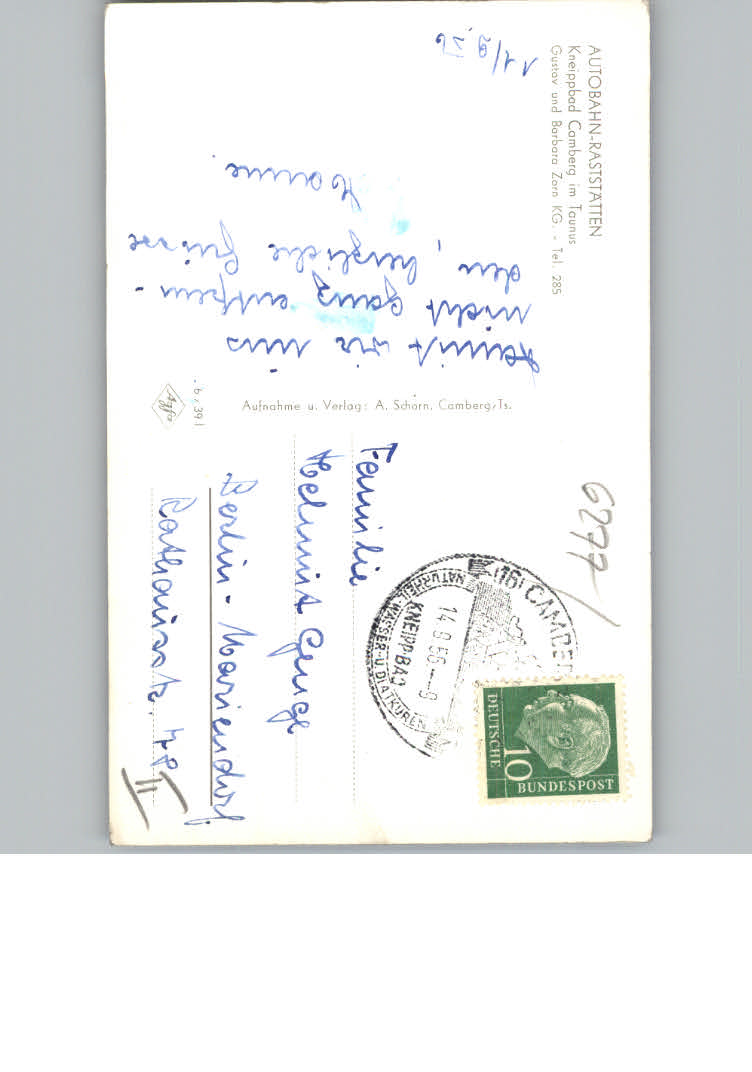 AUTOBAHN-RASTSTÄTTEN
Kneippbad Camberg im Taunus
Gustav und Barbara Zorn KG. - Tel. 285
damit wir uns
nicht ganz entfrem-
den, herzliche Grüsse
Hanne.
Aufnahme u. Verlag: A. Schorn, Camberg/Ts.
Agfa
Familie
Helmut Genge
Berlin-Mariendorf
Rathausstr. 78
II
6277/
(16) CAMBERG
14.9.56.--9
KNEIPP-BAD
NATURHEIL-WASSER-U DIÄTKUREN
10
DEUTSCHE
BUNDESPOST